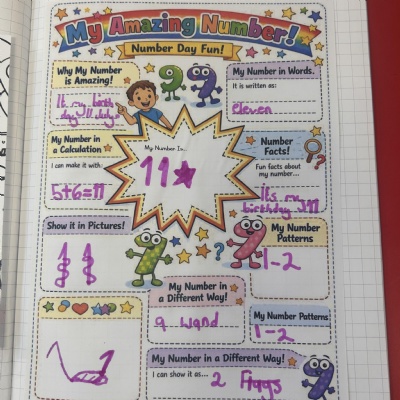 My Amazing Number!
Number Day Fun!
Why My Number
is Amazing!
It my birth
day! 11 July
My Number in Words.
It is written as:
eleven
My Number in
a Calculation
I can make it with:
5+6=11
My Number Is...
11
Number
Facts!
Fun facts about
my number...
Its my
birthday 11
Show it in Pictures!
My Number
Patterns
1-2
My Number in
a Different Way!
a wand
My Number Patterns
1-2
My Number in a Different Way!
I can show it as...
2